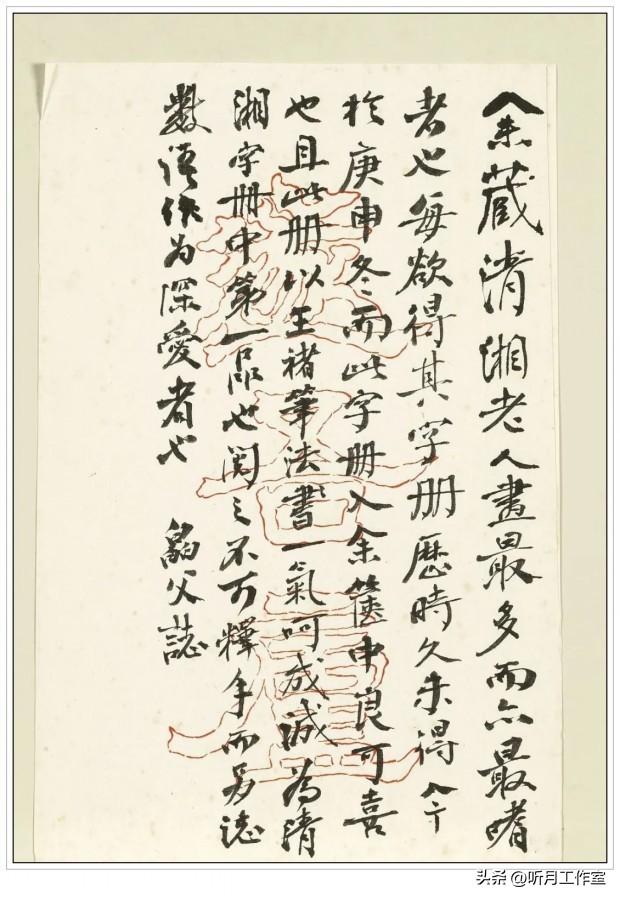 余藏清湘老人畫最多而亦最嗜
者也每欲得其字册歷時久未得
於庚申冬而此字册入余篋中良可喜
也且此册以王褚筆法書一氣呵成誠為清
湘字册中第一品也閱之不可釋手而誌
數語作為深愛者也 父誌
头条 @听月工作室